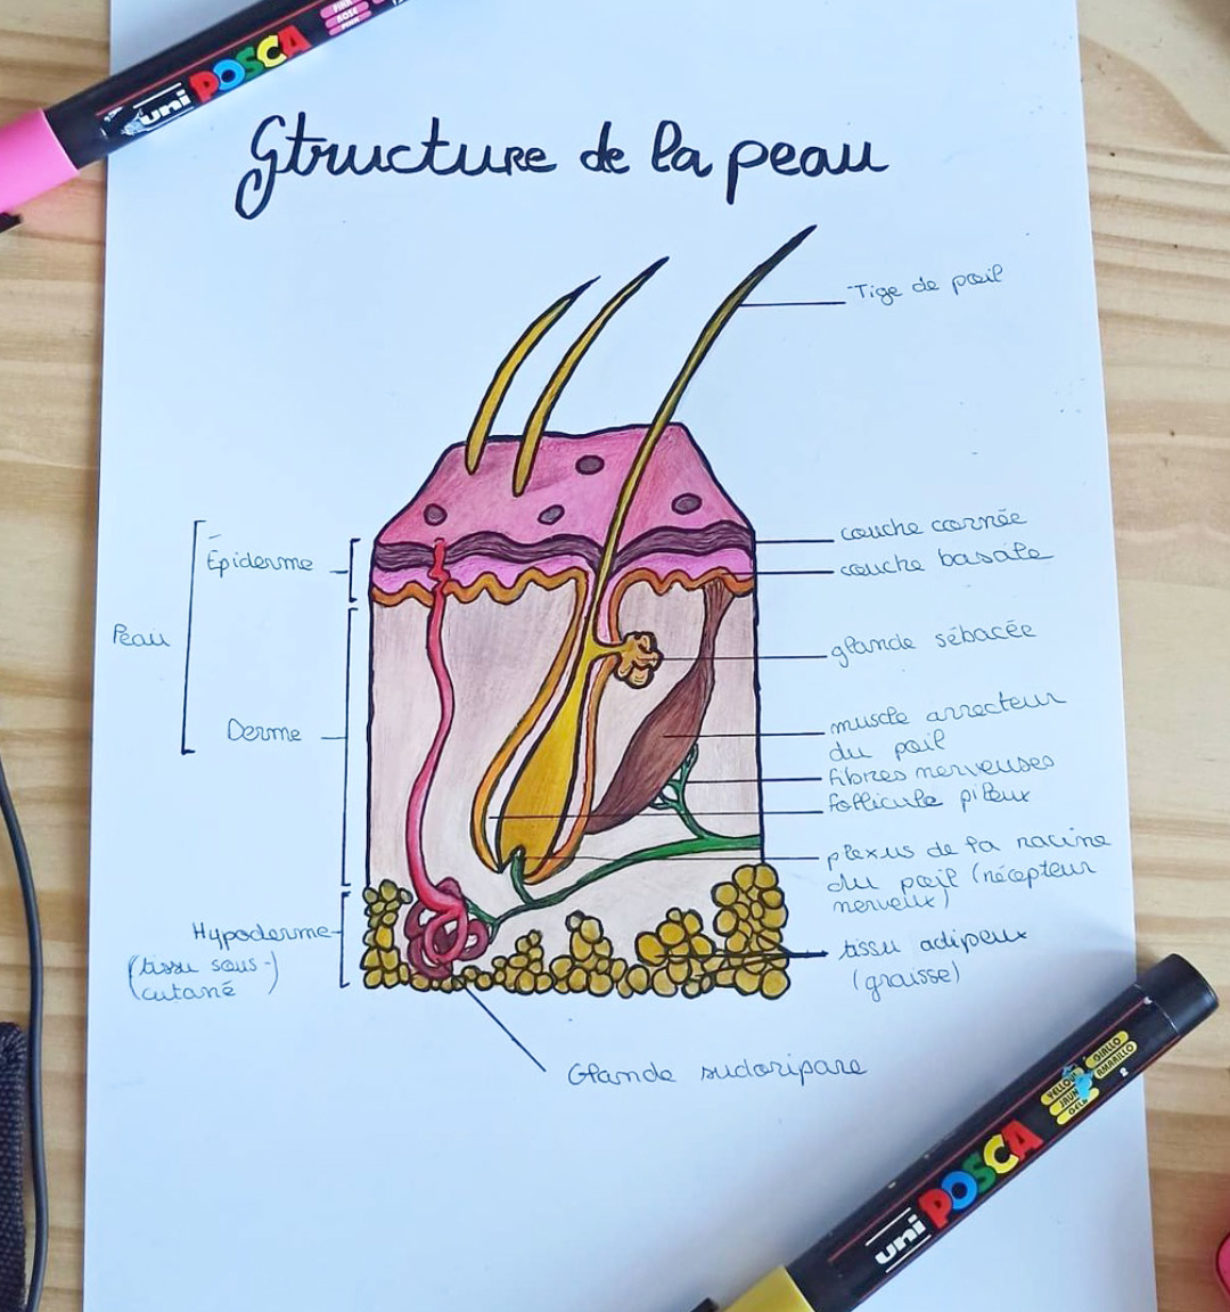 PINK
ROSE
uni POSCA
Structure de la peau
Tige de poil
couche cornée
Épiderme
couche basale
Peau
glande sébacée
muscle arrecteur
Derme
du poil
fibres nerveuses
follicule pileux
plexus de la racine
du poil (récepteur
nerveux)
Hypoderme
(tissu sous-)
cutané
tissu adipeux
(graisse)
Glande sudoripare
YELLOW
GIALLO
JAUNE
AMARILLO
GELB
2
uni POSCA